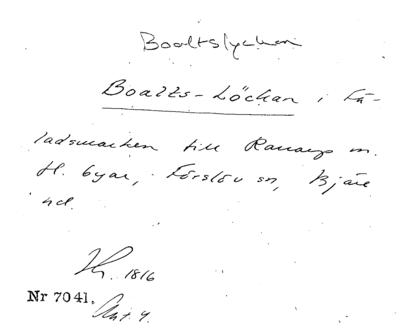 Booltslyckan
Boalts-Löckan i Fä-
ladsmarken till Ranarp m.
fl. byar, Förslöv sn, Bjäre
hd.
1816
Nr 7041.